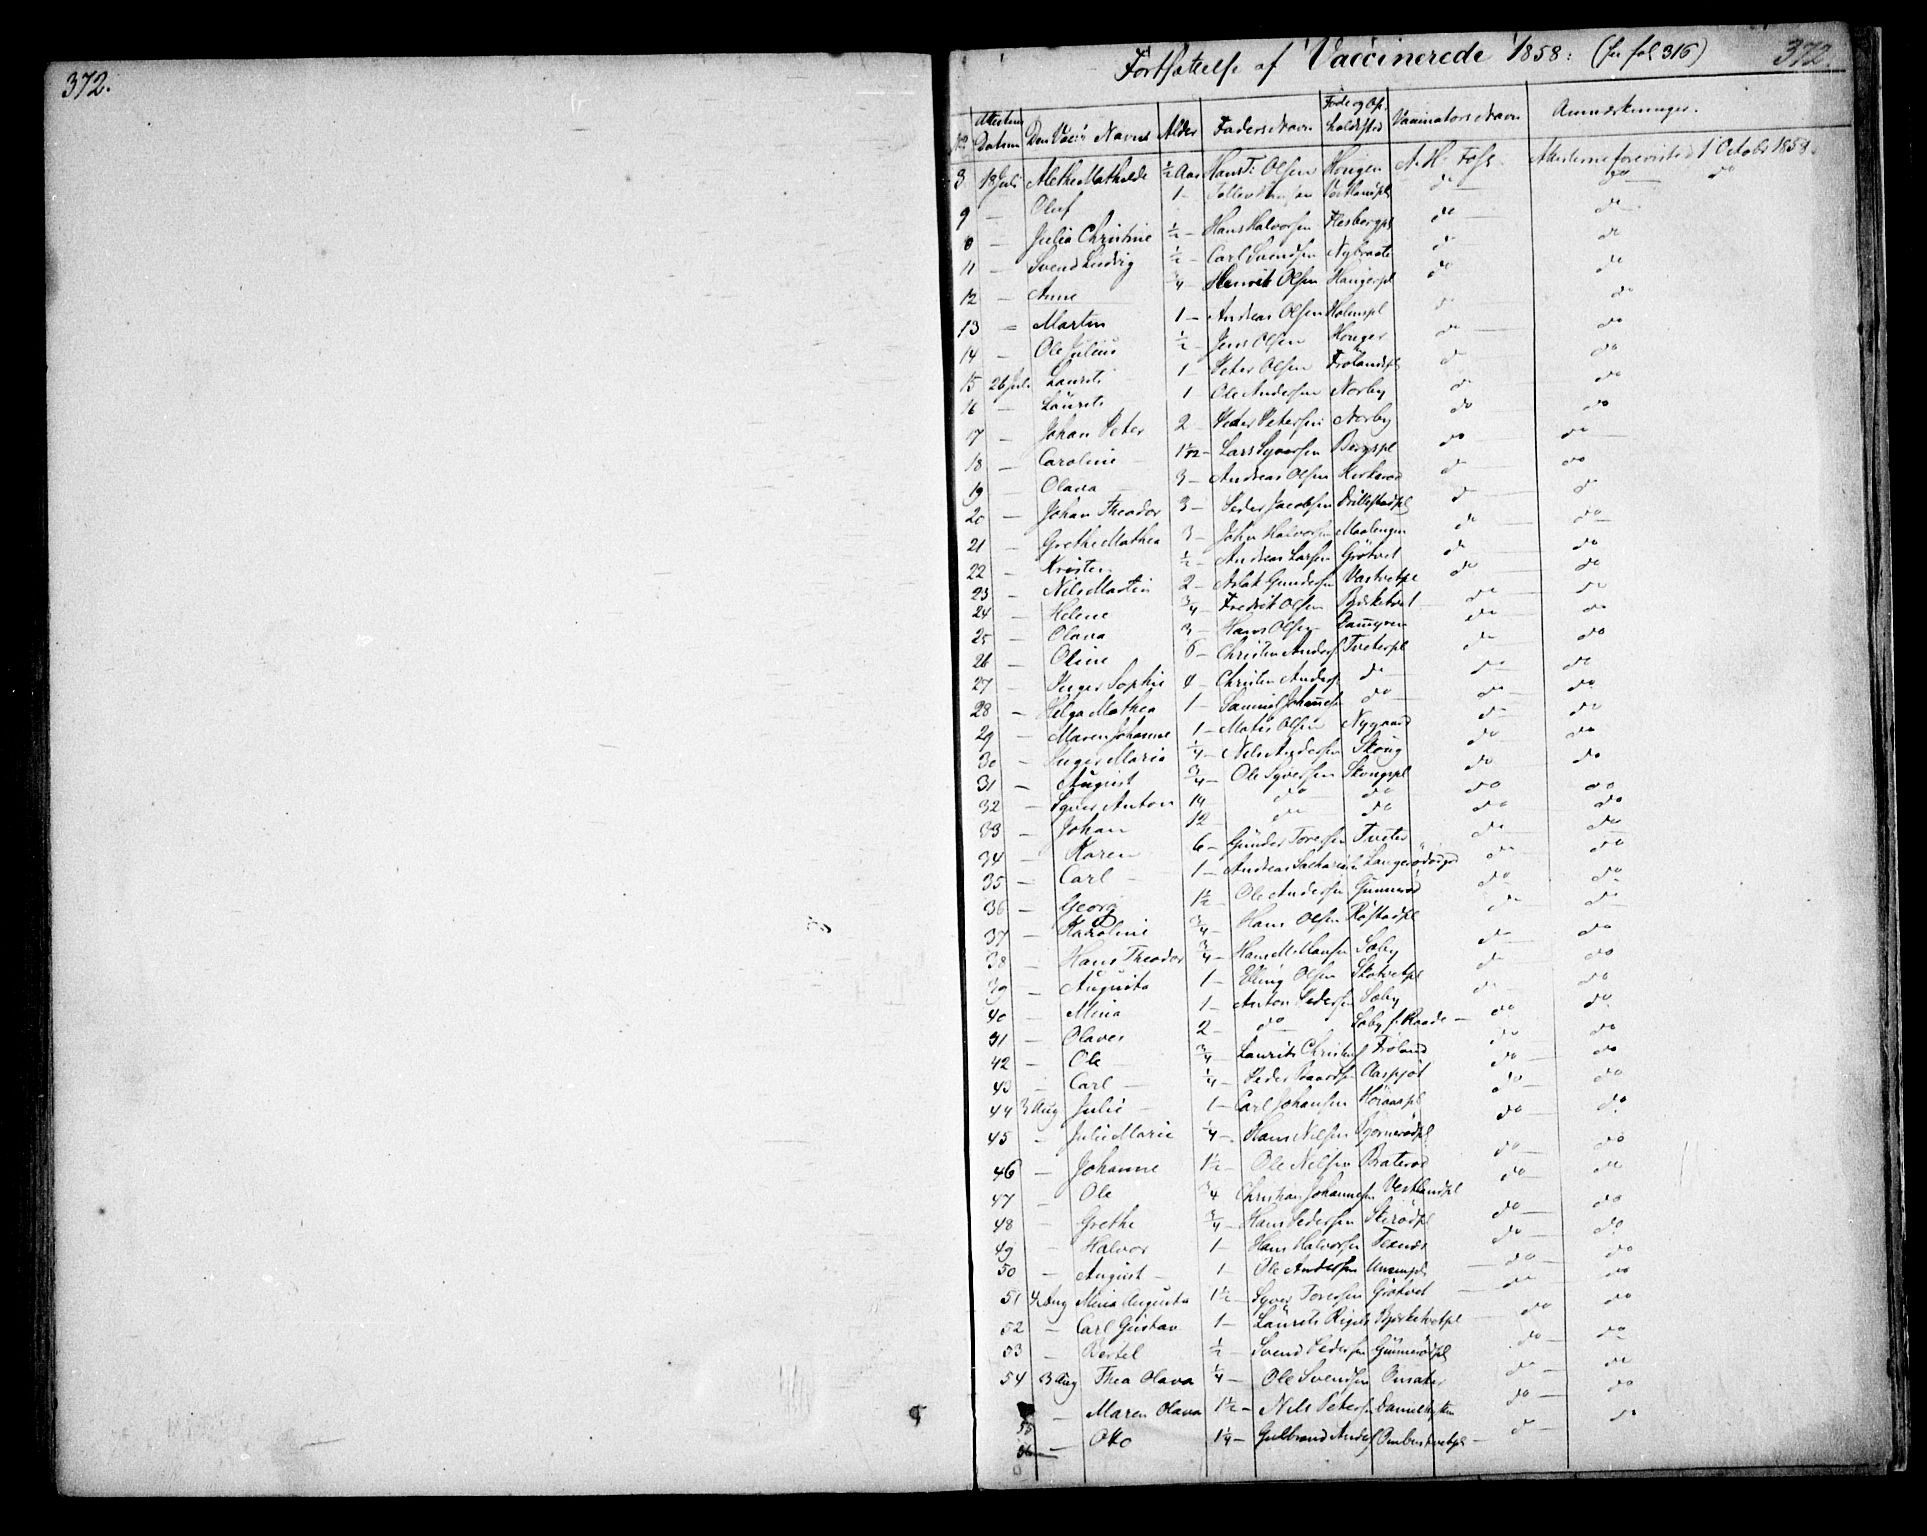 372.
Fortsættelse af Vaccinerede 1858: (fol 316) 372.
No Attestens Datum Den Vacc: Navne Alder Faders Navn Føde og Opholdssted Vaccinators Navn Anmærkninger.
8 18 Juli Alethe Mathilde ½ Aar Hans T: Olsen Hougen A. H. Foss. Attesterne forevist d 1 Octob 1858.
9 — Oluf 1 — do do do
10 — Julia Christine ½ — Hans Halvorsen Flesbergpl do do
11 — Svend Ludvig ½ — Carl Svendsen Nybraate do do
12 — Anne ¾ Henrik Olsen Haugerpl do do
13 — Martin 1 — Andreas Olsen Holmpl do do
14 — Ole Julius ½ — Jens Olsen Houger do do
15 26 Juli Laurits 1 Peter Olsen Frølandspl do do
16 — Laurits 1 Ole Andersen Norby do do
17 — Johan Peter 2 — Peder Petersen Norby do do
18 — Caroline 1½ — Lars Syversen Bergspl do do
19 — Olava 3 — Andreas Olsen Kirkerød do do
20 — Johan Theodor 3 — Peder Jacobsen Drillestadpl do do
21 — Grethe Mathea 3 — John Halvorsen Maalengen do do
22 — Kristen ½ — Andreas Larsen Grøtvet do do
23 — Nils Martin 2 — Aslak Gundersen Vastvetpl do do
24 — Helene ¾ — Fredrik Olsen Bjerketvet — do do
25 — Olava 3 — Hans Olsen Dammyren do do
26 — Oline 6 — Christen Anders Tveterpl do do
27 — Inger Sophie 4 — Christen Anders do do do
28 — Helga Mathea 1 — Samuel Johannes do do do
29 — Maren Johanne 1 — Mats Olsen Nygaard do do
30 — Inger Marie ¼ — Nils Andersen Skoug do do
31 — August ¾ — Ole Syversen Skougspl do do
32 — Syver Anton 14 do do do do
33 — Johan 12 do do do do
34 — Karen 6 — Gunder Toresen Tveter do do
35 — Carl 1 — Andreas Sacharias Langerødsgd do do
36 — Georg 1½ — Ole Andersen Gunnerød do do
37 — Karoline ¾ — Hans Olsen Røstadpl do do
38 — Hans Theodor ¾ — Hans M. Hansen Saby do do
39 — Augusta 1 — Elling Olsen Skotvetpl do do
40 — Mina 1 — Anton Pedersen Saby do do
41 — Olaves 2 — do Saby f. Raade — do do
42 — Ole ¾ — Laurits Christens Frøland do do
43 — Carl — ¼ — Peder do do
44 3 Aug Julie — 1 — Carl Johansen do do
45 — Julie Marie ¼ — Hans Nilsen Bjørnerødpl do do
46 — Johanne 1½ — Ole Nilsen Braterød do do
47 — Ole ¾ Christian Johannesen Vestlandpl do do
48 — Grethe ¾ — Hans Pedersen Skirødpl do do
49 — Halvor 1 — Hans Halvorsen Texnæs do do
50 — August — 1 — Ole Andersen — do do
51 4 Aug Mina Augusta 1½ — Syver Toresen Grøtvet — do do
52 — Carl Gustav 1 — Laurits Bjerketvetpl do do
53 — Kertel ½ — Svend Pedersen Gunnerødpl do do
54 3 Aug Thea Olava ¼ — Ole Svendsen do do
55 — Maren Olava 1½ — Nils Petersen Danielhytten do do
56 — Otto 1¼ — Gulbrand Anders — do do